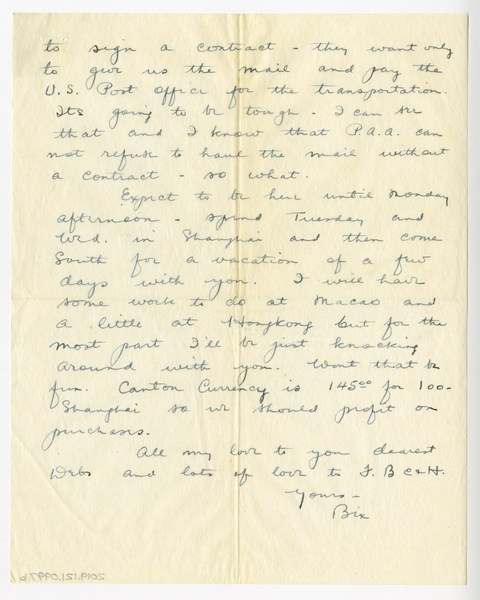 to sign a contract - they want only
to give us the mail and pay the
U.S. Post office for the transportation.
Its going to be tough - I can see
that and I know that P.A.A. can
not refuse to haul the mail without
a contract - so what.
Expect to be here until Monday
afternoon - spend Tuesday and
Wed. in Shanghai and then come
South for a vacation of a few
days with you. I will have
some work to do at Macao and
a little at Hongkong but for the
most part I'll be just knocking
around with you. Wont that be
fun. Canton Currency is 145.00 for 100-
Shanghai so we should profit on
purchases.
All my love to you dearest
Debs and lots of love to F. B C & H.
Yours -
Bix
2019.121.0997b